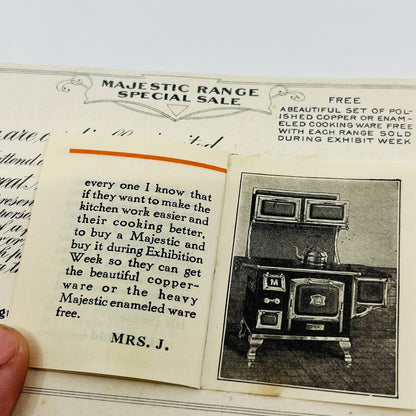 MAJESTIC RANGE
SPECIAL SALE
FREE
A BEAUTIFUL SET OF POL-
ISHED COPPER OR ENAM-
ELED COOKING WARE FREE
WITH EACH RANGE SOLD
DURING EXHIBIT WEEK
every one I know that
if they want to make the
kitchen work easier and
their cooking better,
to buy a Majestic and
buy it during Exhibition
Week so they can get
the beautiful copper-
ware or the heavy
Majestic enameled ware
free.
MRS. J.
M